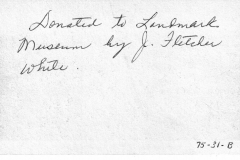 Donated to Landmark
Museum by J. Fletcher
White.
75-31-B